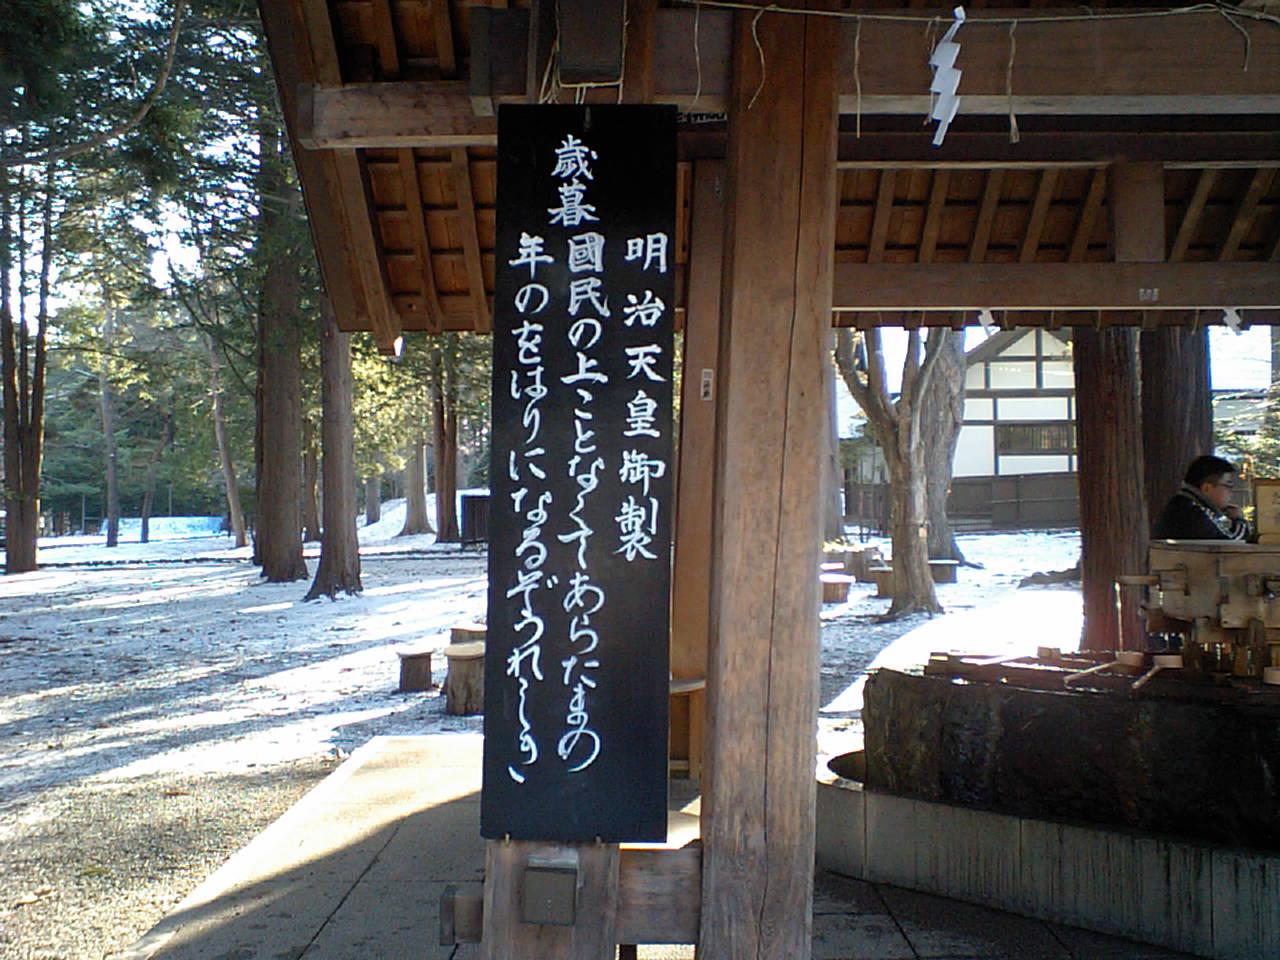 明治天皇御製
歳暮
國民の上ことなくてあらたまの
年のをはりになるぞうれしき